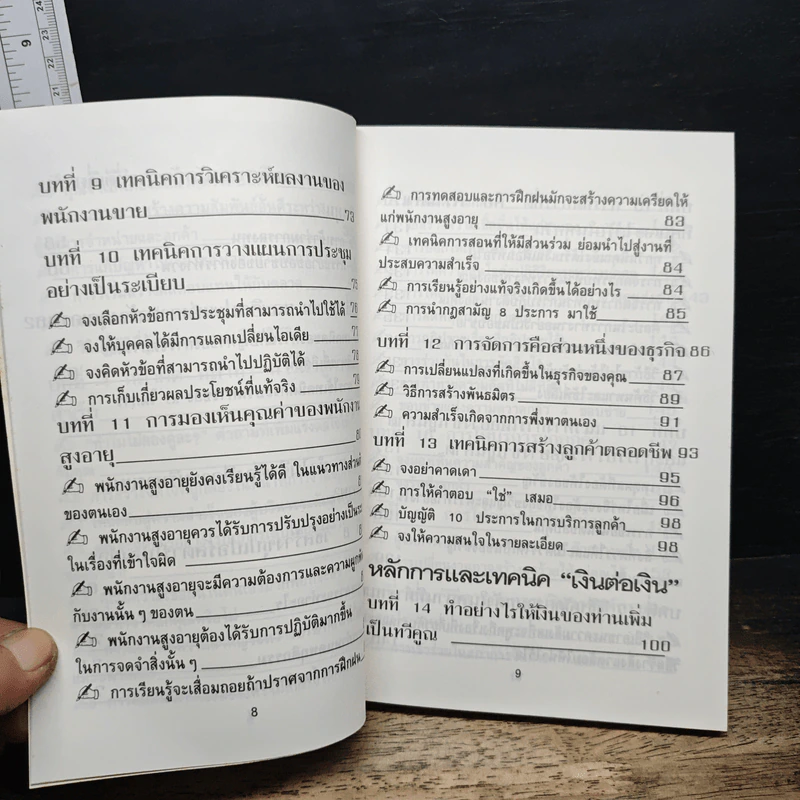 9
24
23
22
21
บทที่ 9 เทคนิคการวิเคราะห์ผลงานของ
พนักงานขาย 73
บทที่ 10 เทคนิคการวางแผนการประชุม
อย่างเป็นระเบียบ 75
จงเลือกหัวข้อการประชุมที่สามารถนำไปใช้ได้ 76
จงให้บุคคลได้มีการแลกเปลี่ยนไอเดีย
จงคิดหัวข้อที่สามารถนำไปปฏิบัติได้
การเก็บเกี่ยวผลประโยชน์ที่แท้จริง
บทที่ 11 การมองเห็นคุณค่าของพนักงาน
สูงอายุ
พนักงานสูงอายุยังคงเรียนรู้ได้ดี ในแนวทาง
ของตนเอง
พนักงานสูงอายุควรได้รับการปรับปรุงอย่าง
ในเรื่องที่เข้าใจผิด
พนักงานสูงอายุจะมีความต้องการและความ
กับงานนั้น ๆ ของตน
พนักงานสูงอายุต้องได้รับการปฏิบัติมากขึ้น
ในการจดจำสิ่งนั้น ๆ
การเรียนรู้จะเสื่อมถอยถ้าปราศจากการฝึกฝน
8
การทดสอบและการฝึกฝนมักจะสร้างความเครียดให้
แก่พนักงานสูงอายุ 83
เทคนิคการสอนที่ให้มีส่วนร่วม ย่อมนำไปสู่งานที่
ประสบความสำเร็จ 84
การเรียนรู้อย่างแท้จริงเกิดขึ้นได้อย่างไร 84
การนำกฎสามัญ 8 ประการ มาใช้ 85
บทที่ 12 การจัดการคือส่วนหนึ่งของธุรกิจ 86
การเปลี่ยนแปลงที่เกิดขึ้นในธุรกิจของคุณ 87
วิธีการสร้างพันธมิตร 89
ความสำเร็จเกิดจากการพึ่งพาตนเอง 91
บทที่ 13 เทคนิคการสร้างลูกค้าตลอดชีพ 93
จงอย่าคาดเดา 95
การให้คำตอบ “ใช่” เสมอ 96
บัญญัติ 10 ประการในการบริการลูกค้า 98
จงให้ความสนใจในรายละเอียด 98
หลักการและเทคนิค “เงินต่อเงิน”
บทที่ 14 ทำอย่างไรให้เงินของท่านเพิ่ม
เป็นทวีคูณ 100
9